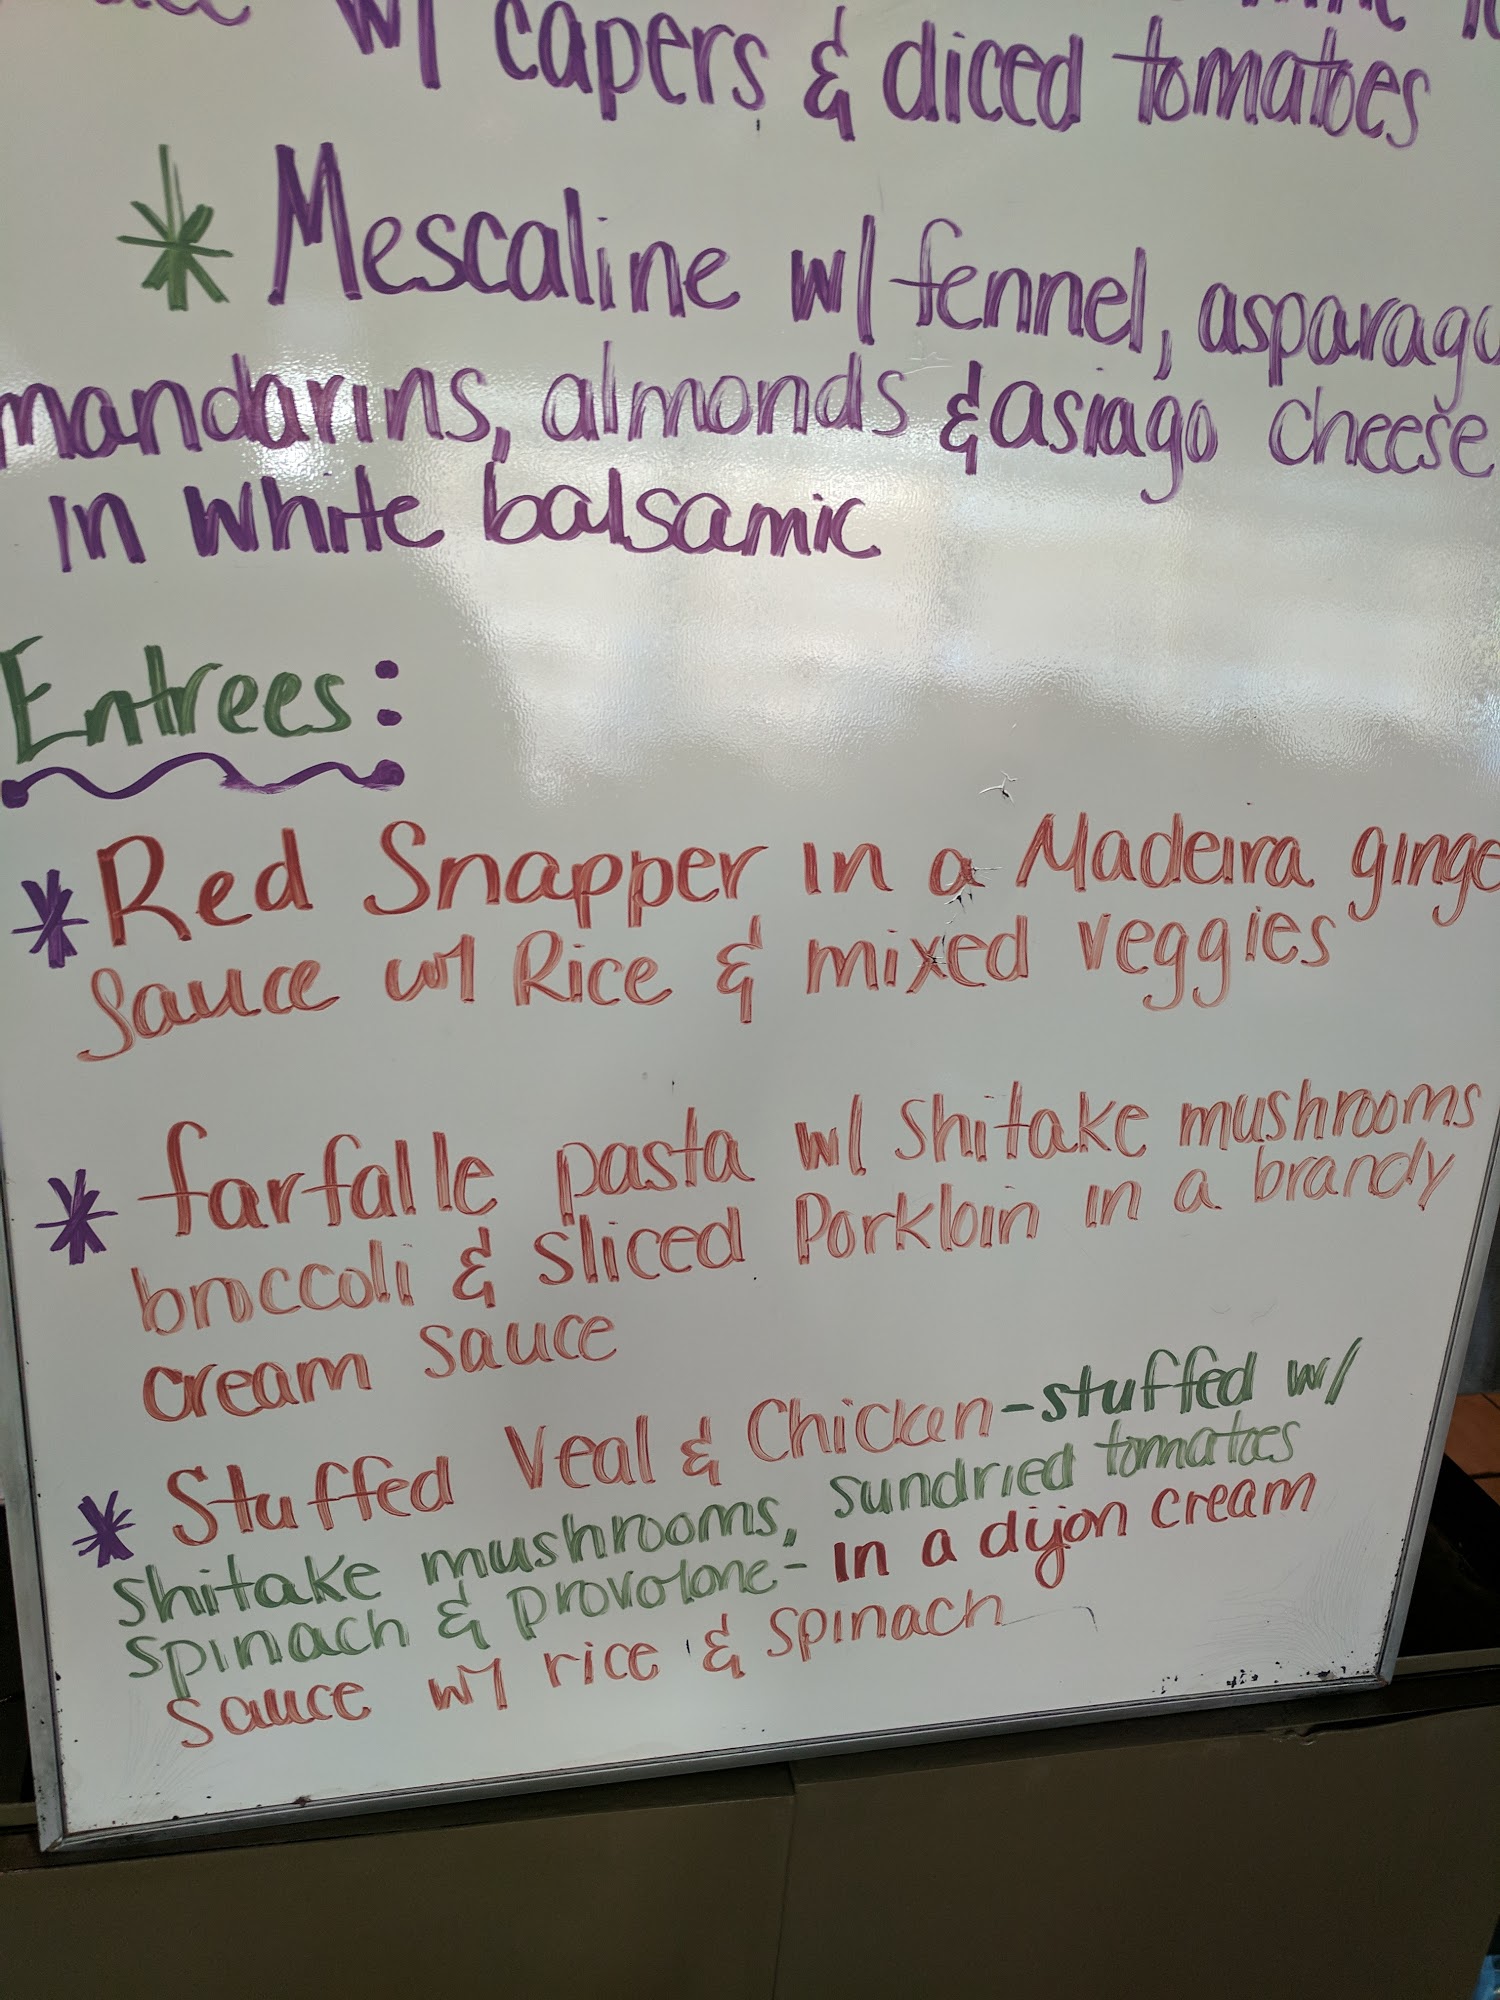 w/ capers & diced tomatoes
* Mescaline w/ fennel, asparagu
mandarins, almonds & asiago cheese
in white balsamic
Entrees:
* Red Snapper in a Madeira ginge
Sauce w/ Rice & mixed veggies
* farfalle pasta w/ Shitake mushrooms
broccoli & sliced Porkloin in a brandy
cream sauce
* Stuffed Veal & Chicken - stuffed w/
shitake mushrooms, sundried tomatoes
spinach & provolone - in a dijon cream
sauce w/ rice & spinach